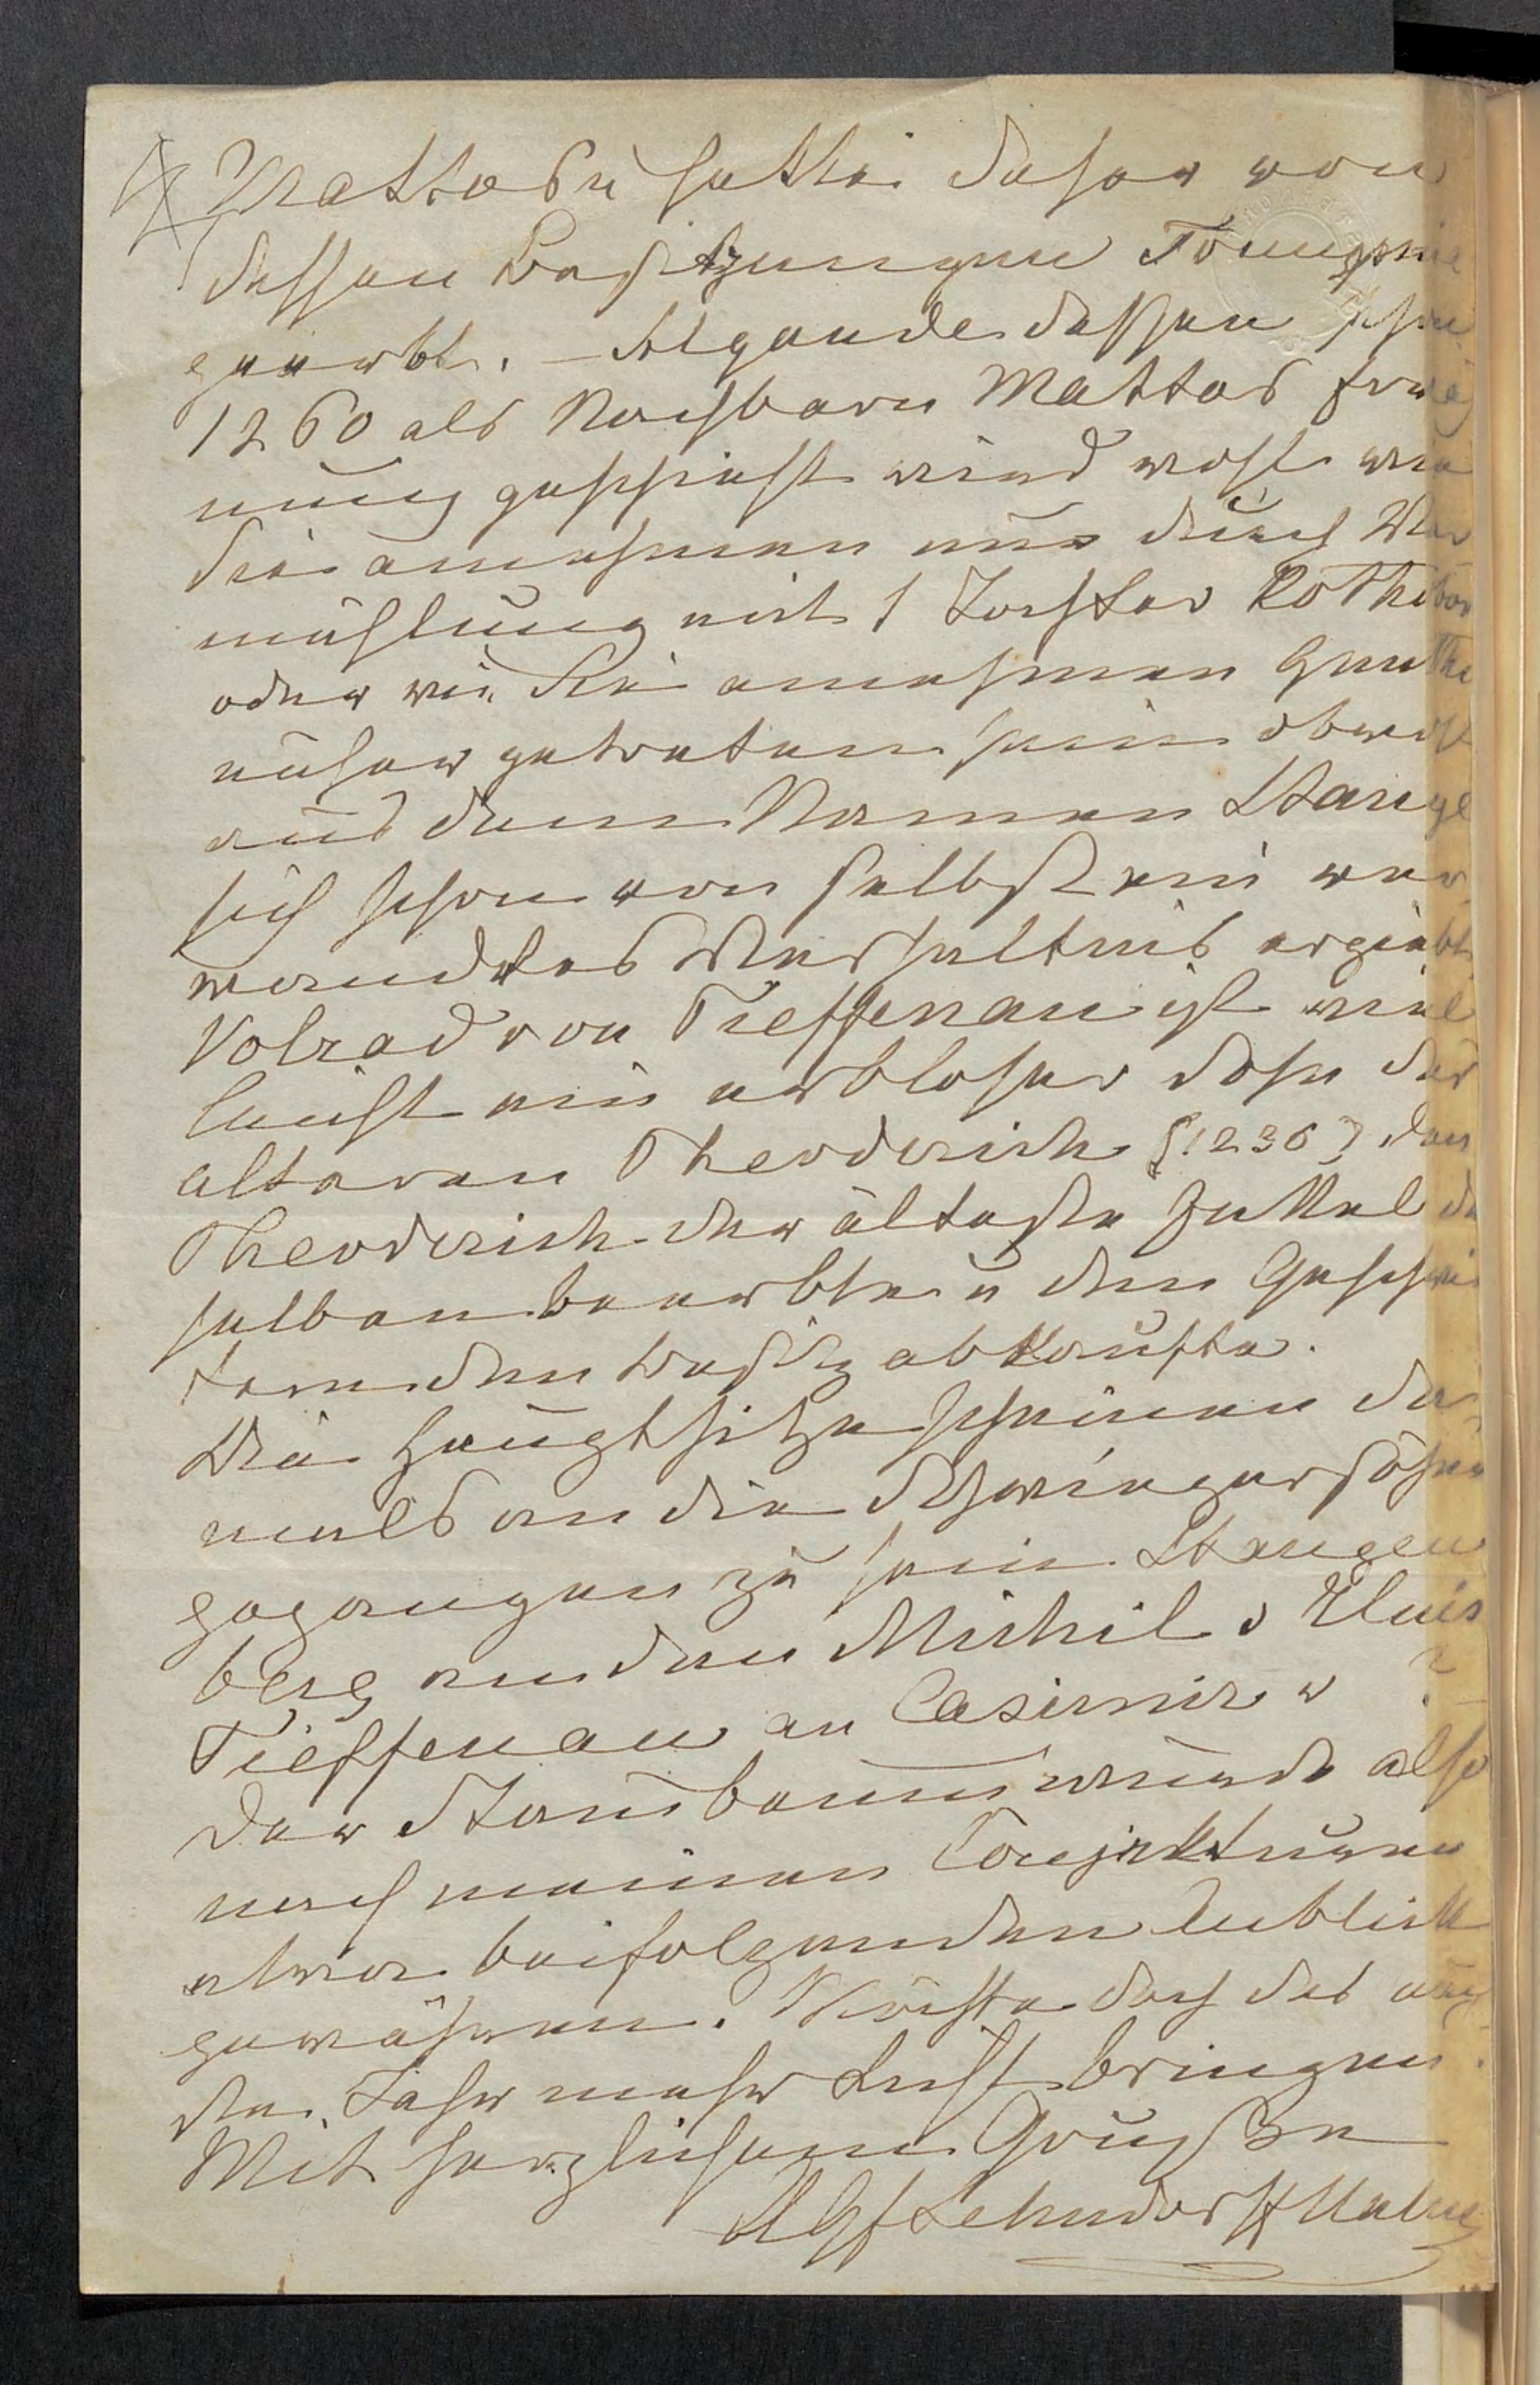 Mattos u hatte daher von
dessen Besitzungen Tömpsnie
geerbt. – Algande dessen schon
1260 als Nachbarn Mattos Erwä
nung geschieht wird wohl wie
Sie annehmen nur durch Ver
mählung mit 1 Tochter Dothe
oder wie Sie annehmen
näher getreten sein obwohl
aus dem Namen Stange
sich schon von selbst ein ver
wandtes Verhältnis ergiebt
Volrad von Tieffenau ist viel
leicht ein erbloser Sohn des
älteren Theoderich (1236) den
Theoderich der älteste Enkel des
selben beerbte u den Geschwi
stern den Besitz abkaufte.
Die Hauptsitze scheinen da
mals an die Schwiegersöhne
gegangen zu sein Stangen
berg an den Michil v
Tieffenau an Casimir v ?
Der Stammbaum würde also
nach meinen Conjekturen
etwa beifolgenden Anblick
gewähren. Möchte doch das neu
de Jahr mehr Licht bringen.
Mit herzlichem Gruße
Lehndorff